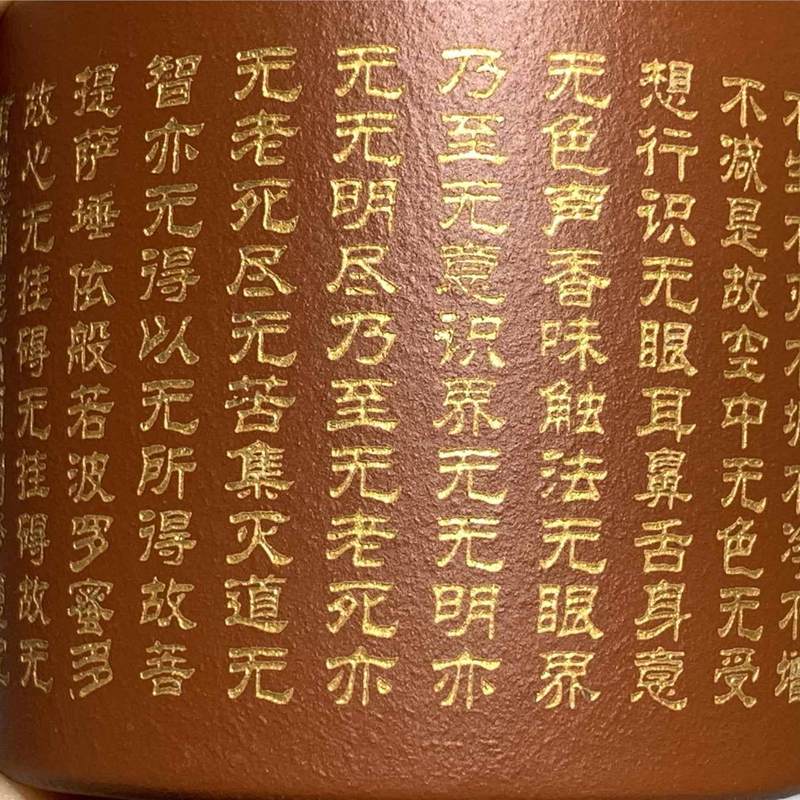 不生不灭不垢不净不增
不减是故空中无色无受
想行识无眼耳鼻舌身意
无色声香味触法无眼界
乃至无意识界无无明亦
无无明尽乃至无老死亦
无老死尽无苦集灭道无
智亦无得以无所得故菩
提萨埵依般若波罗蜜多
故心无挂碍无挂碍故无